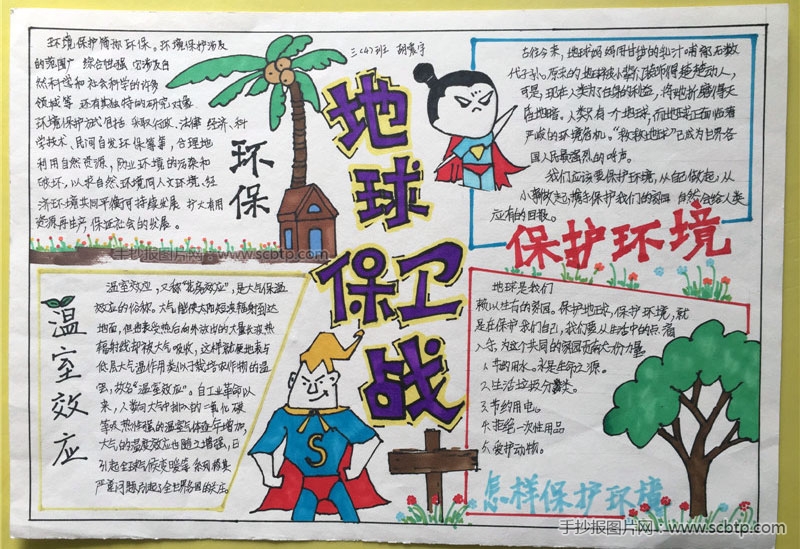 环境保护简称环保。环境保护涉及
的范围广 综合性强 它涉及自
然科学和社会科学的许多
领域等 还有其独特的研究对象
环境保护方式包括 采取行政、法律 经济、科
学技术、民间自发环保等, 合理地
利用自然资源、防止环境的污染和
破坏,以求自然环境同人文环境、经
济环境共同平衡可持续发展 扩大有用
资源再生产,保证社会的发展。
环保
三(4)班
地球
保卫
战
古往今来,地球妈妈用甘甜的乳汁哺育无数
代子孙。原来的地球被小辈们装饰得楚楚动人,
可是,现在人类为了自身的利益,将她折磨得天
昏地暗。人类只有一个地球,而地球正面临着
严峻的环境危机。"救救地球"已成为世界各
国人民最强烈的呼声。
我们应该要保护环境,从自己做起,从
小事做起,携手保护我们的家园 自然会给人类
应有的回报。
保护环境
手抄报图片网 - www.scbtp.com
温室效应
温室效应,又称"花房效应",是大气保温
效应的俗称。大气能使太阳短波辐射到达
地面,但地表受热后向外放出的大量长波热
辐射线却被大气吸收,这样就使地表与
低层大气温作用类似于栽培农作物的温
室,故名"温室效应"。自工业革命以
来,人类向大气中排入的二氧化碳
等吸热性强的温室气体逐年增加,
大气的温室效应也随之增强,已
引起全球气候变暖等 系列极其
严重问题,引起了全世界各国的关注。
S
地球是我们
赖以生存的家园。保护地球,保护环境,就
是在保护我们自己,我们要从生活中的点滴
入手,为这个共同的家园贡献力量
1.节约用水。水是生命之源。
2.生活垃圾分类。
3.节约用电。
4.拒绝一次性用品
5.爱护动物。
怎样保护环境
手抄报图片网:www.scbtp.com